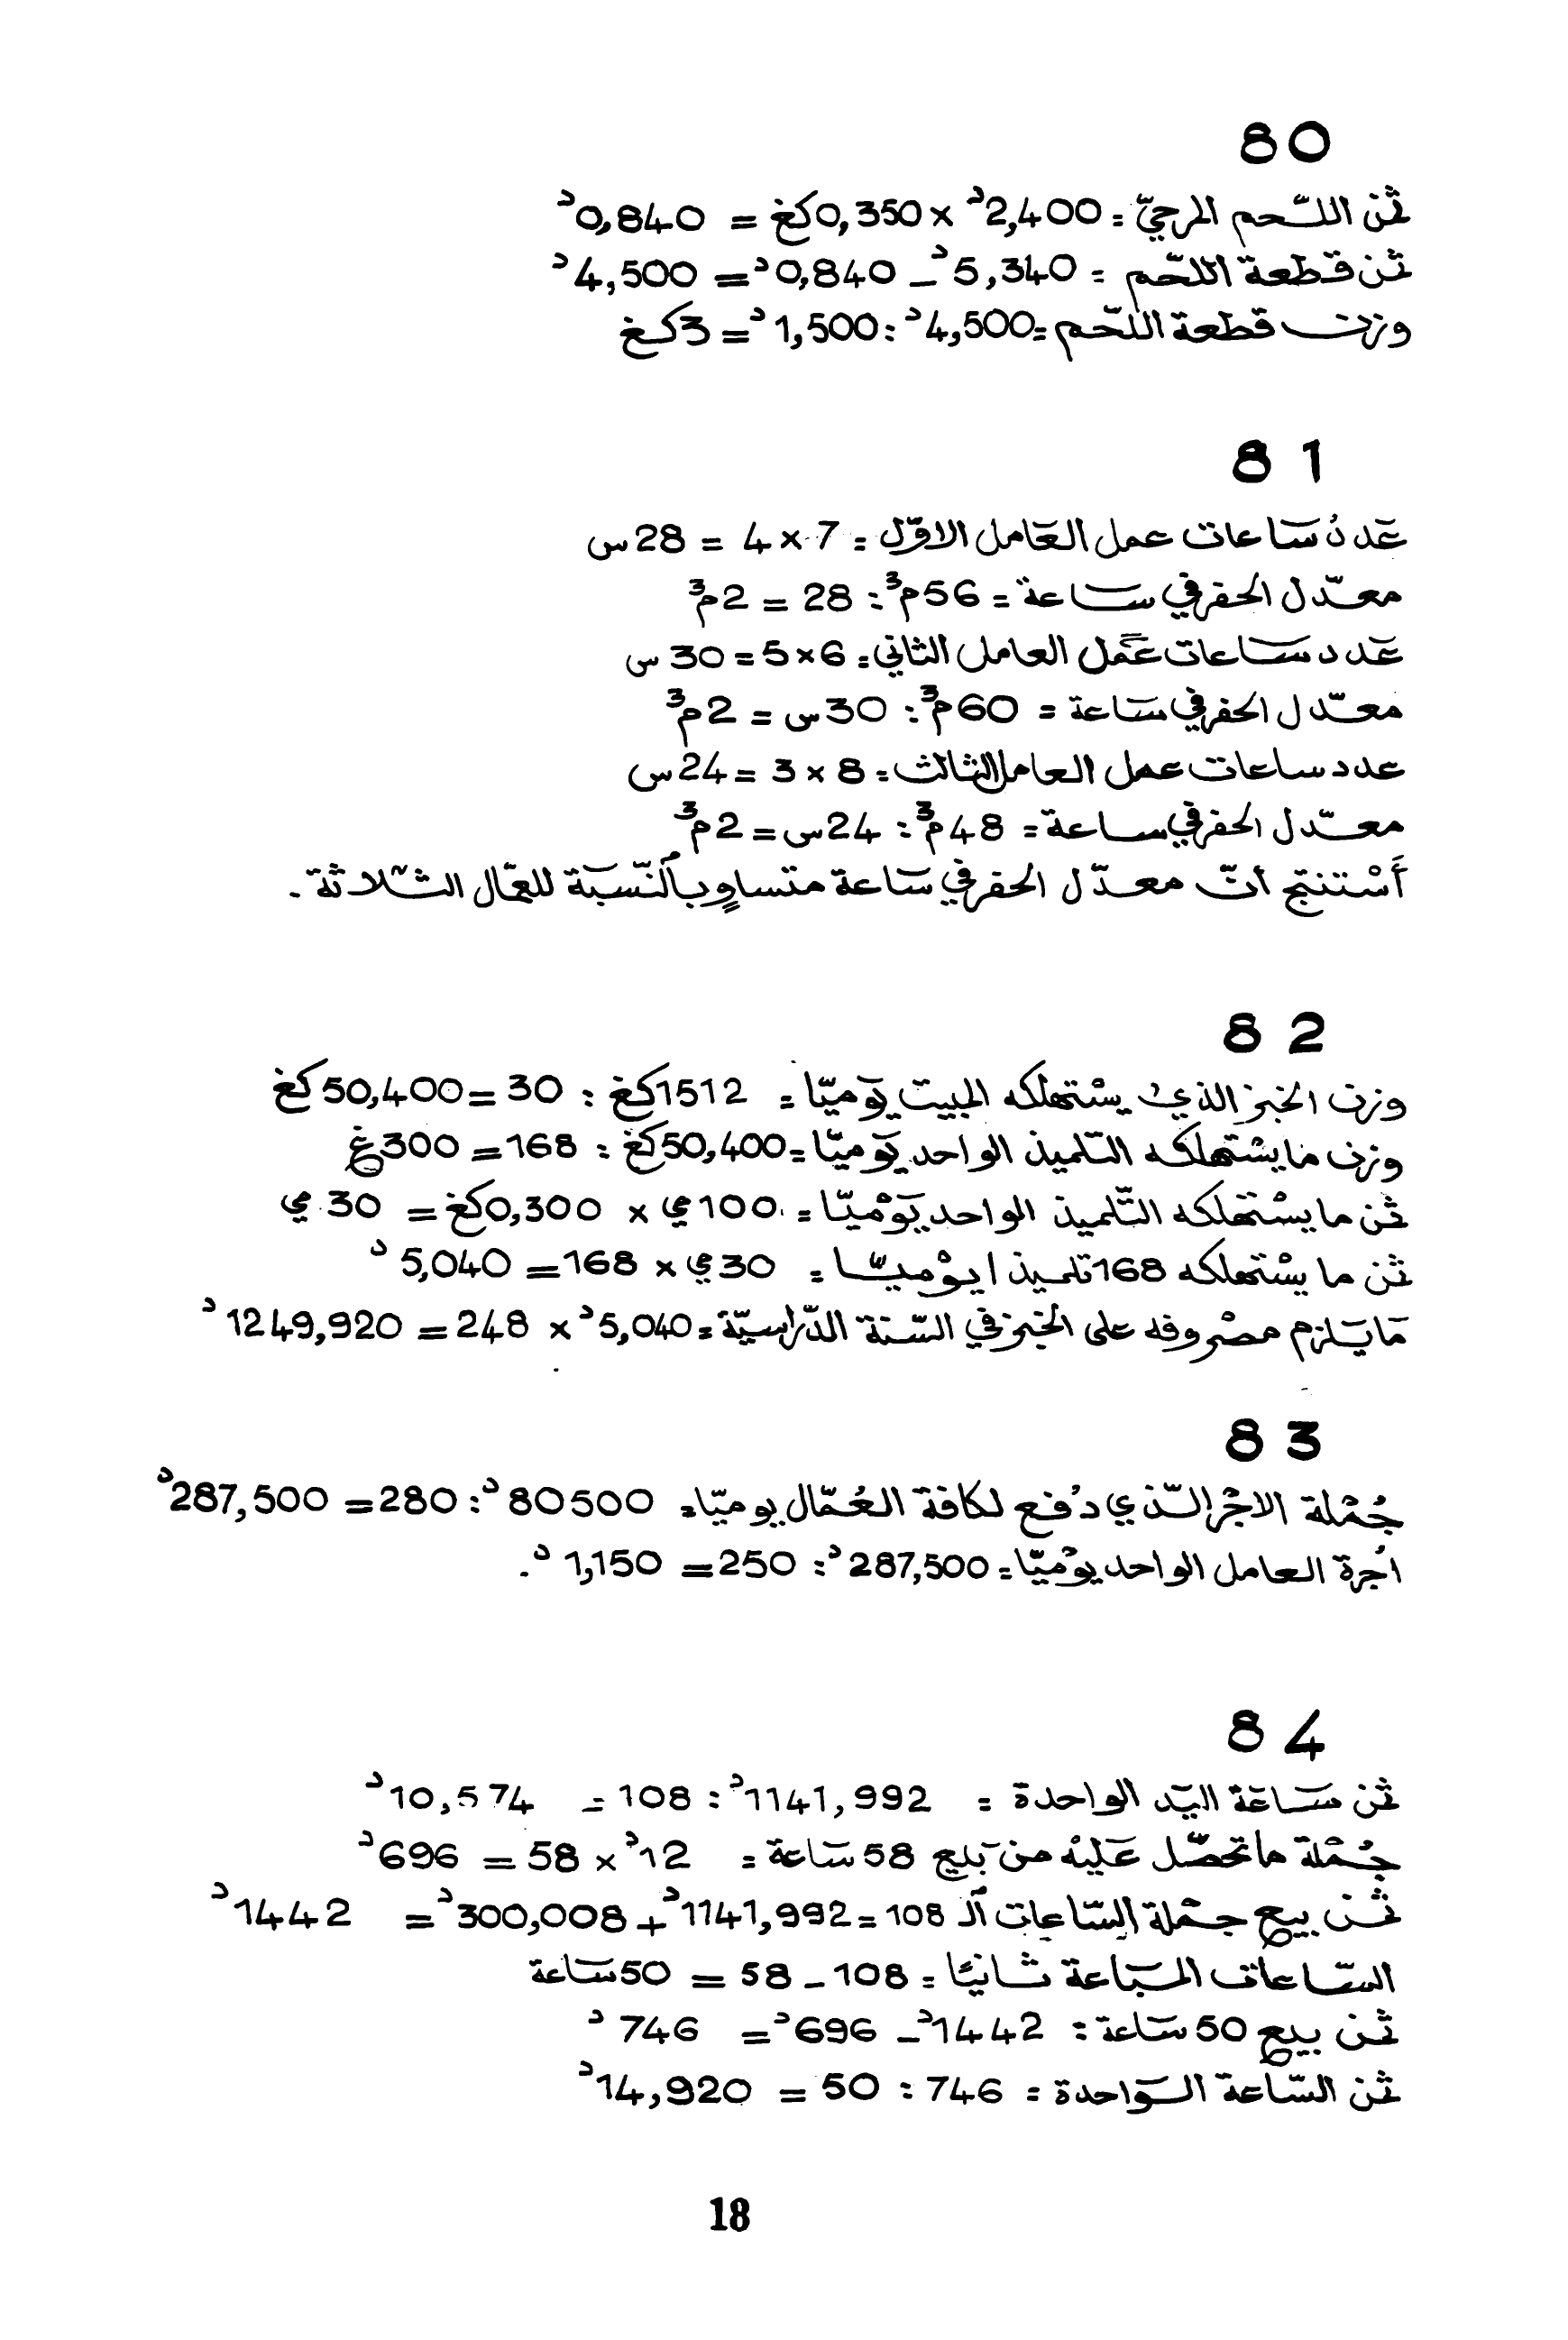 80
ثمن اللّحم المرجيّ = 2,400د × 0,350كغ = 0,840د
ثمن قطعة اللّحم = 5,340د - 0,840د = 4,500د
وزن قطعة اللّحم = 4,500د : 1,500د = 3كغ
81
عَدد سَاعات عمل العَامل الاوّل = 7 × 4 = 28س
معدّل الحفر في سَاعة = 56م³ : 28 = 2م³
عَدد سَاعات عَمَل العامل الثاني = 6 × 5 = 30س
معدّل الحفر في سَاعة = 60م³ : 30س = 2م³
عدد ساعات عمل العامل الثالث = 8 × 3 = 24س
معدّل الحفر في ساعة = 48م³ : 24س = 2م³
أَسْتنتج انّ معدّل الحفر في سَاعة متساوٍ بالنّسبَة للعمّال الثّلاثة.
82
وزن الخبز الذي يسْتهلكه المبيت يَوميّا = 1512كغ : 30 = 50,400كغ
وزن ما يسْتهلكه التّلميذ الواحد يَوميّا = 50,400كغ : 168 = 300غ
ثمن ما يسْتهلكه التّلميذ الواحد يَوْميّا = 100ي × 0,300كغ = 30ي
ثمن ما يسْتهلكه 168 تلميذا يوْميّا = 30ي × 168 = 5,040د
مَا يَلزم مصْروفه على الخبز في السّنة الدّراسيّة = 5,040د × 248 = 1249,920د
83
جُمْلة الاجْر الّذي دُفع لكافة العُمّال يوميّا = 80500د : 280 = 287,500د
اجُرة العامل الواحد يوْميّا = 287,500د : 250 = 1,150د.
84
ثمن سَاعَة اليَد الواحدة = 1141,992د : 108 = 10,574د
جُمْلة ما تحصّل عَليْه من بَيع 58 سَاعة = 12د × 58 = 696د
ثمن بيع جمْلة السّاعات الـ 108 = 1141,992د + 300,008د = 1442د
السّاعات المبَاعة ثانيًا = 108 - 58 = 50 سَاعة
ثمن بيع 50 سَاعة : 1442د - 696د = 746د
ثمن السّاعة الوَاحدة = 746 : 50 = 14,920د
18